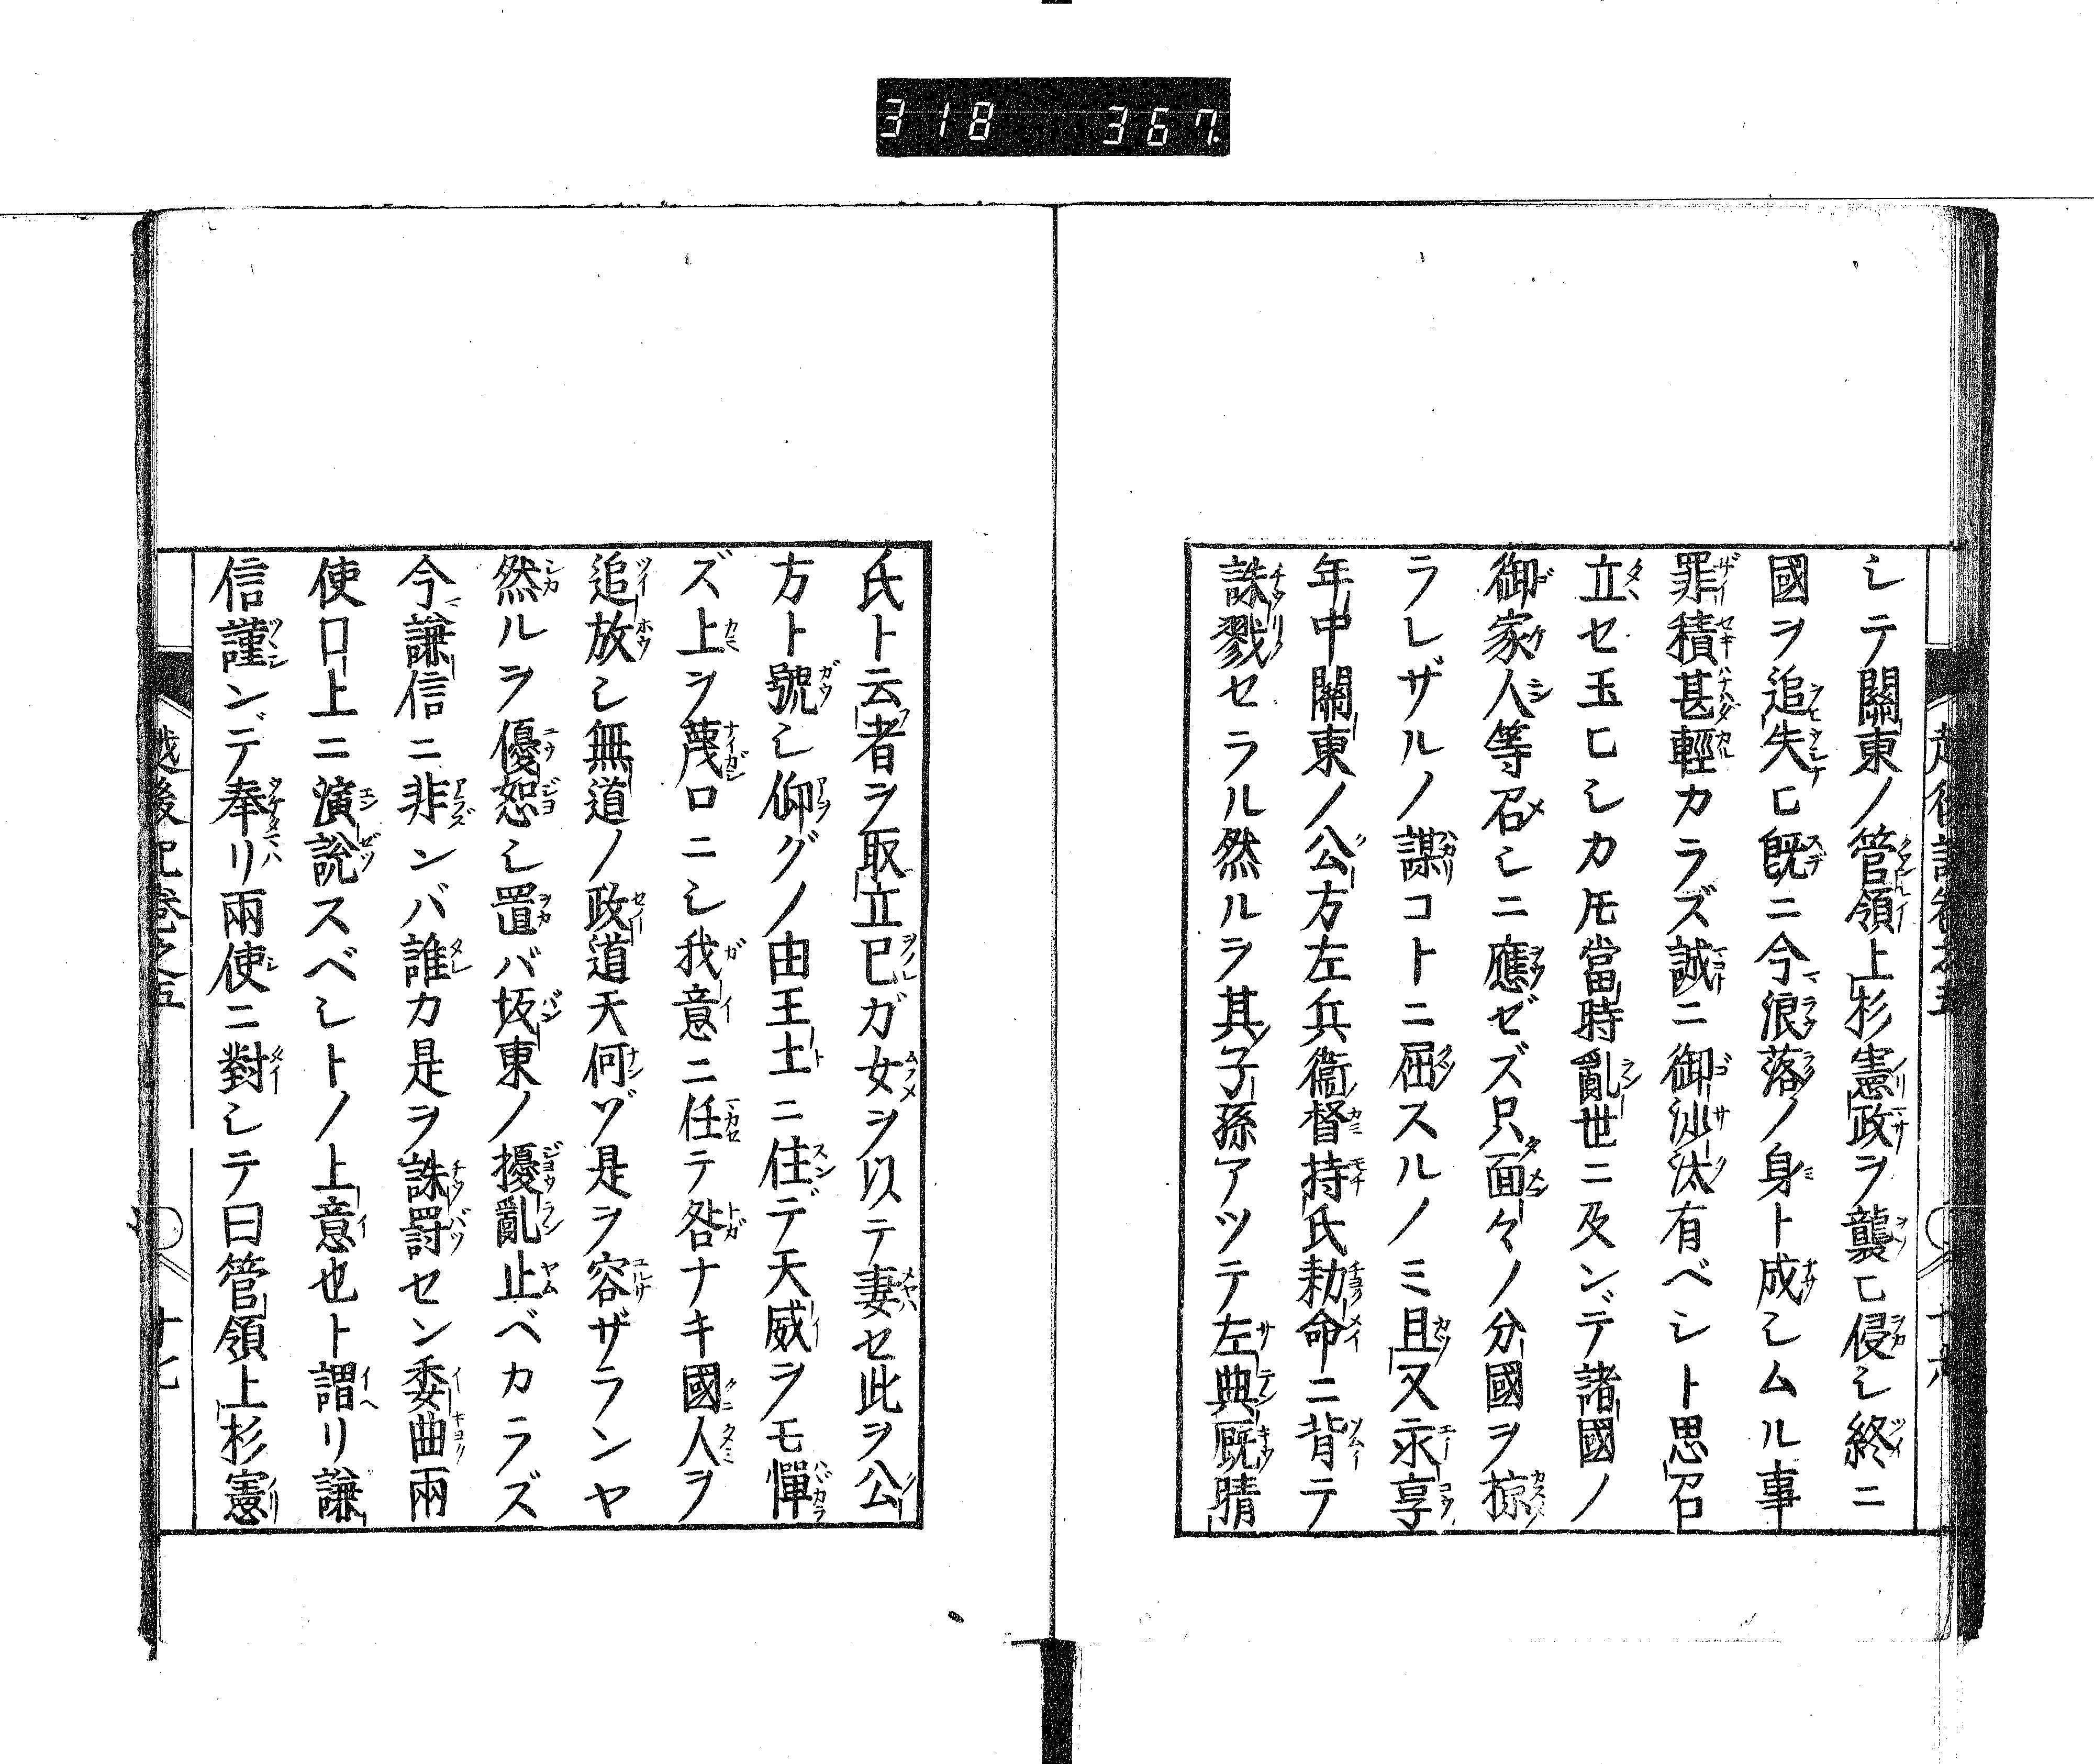 318 367
シテ關東ノ管領上杉憲政ヲ襲ヒ侵シ終ニ
國ヲ追失ヒ既ニ今浪落ノ身ト成シムル事
罪積甚輕カラズ誠ニ御沙汰有ベシト思召
立セ玉ヒシカ𪜈當時亂世ニ及ンデ諸國ノ
御家人等召シニ應ゼズ只面々ノ分國ヲ掠
ラレザルノ謀コトニ屈スルノミ且又永享
年中關東ノ公方左兵衞督持氏勅命ニ背テ
誅戮セラル然ルヲ其子孫アツテ左典厩晴
氏ト云者ヲ取立已ガ女ヲ以テ妻セ此ヲ公
方ト號シ仰グノ由王土ニ住デ天威ヲモ憚
ズ上ヲ蔑ロニシ我意ニ任テ咎ナキ國人ヲ
追放シ無道ノ政道天何ゾ是ヲ容ザランヤ
然ルヲ優恕シ置バ坂東ノ擾亂止ベカラズ
今謙信ニ非ンバ誰カ是ヲ誅罰セン委曲兩
使口上ニ演説スベシトノ上意也ト謂リ謙
信謹ンデ奉リ兩使ニ對シテ曰管領上杉憲
越後記卷之五